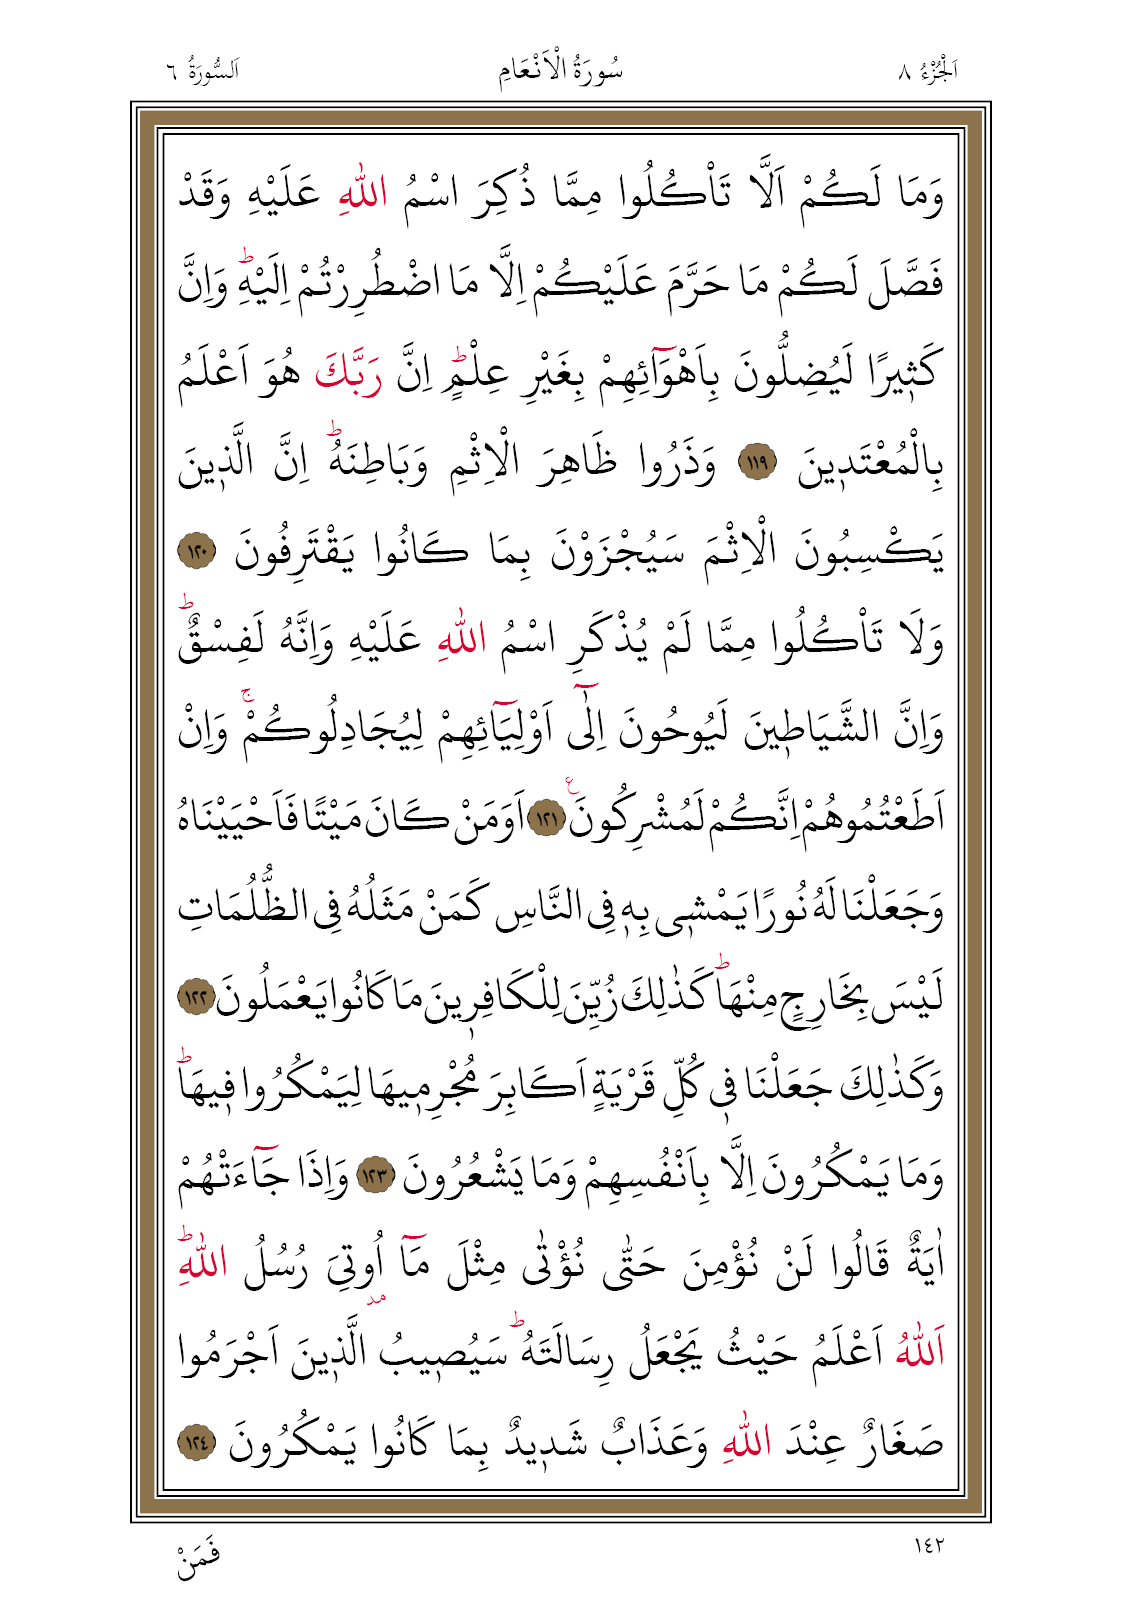 اَلْجُزْءُ ٨ سُورَةُ الْاَنْعَامِ اَلسُّورَةُ ٦
وَمَا لَكُمْ اَلَّا تَاْكُلُوا مِمَّا ذُكِرَ اسْمُ اللّٰهِ عَلَيْهِ وَقَدْ
فَصَّلَ لَكُمْ مَا حَرَّمَ عَلَيْكُمْ اِلَّا مَا اضْطُرِرْتُمْ اِلَيْهِۜ وَاِنَّ
كَث۪يرًا لَيُضِلُّونَ بِاَهْوَٓائِهِمْ بِغَيْرِ عِلْمٍۜ اِنَّ رَبَّكَ هُوَ اَعْلَمُ
بِالْمُعْتَد۪ينَ ﴿١١٩﴾ وَذَرُوا ظَاهِرَ الْاِثْمِ وَبَاطِنَهُۜ اِنَّ الَّذ۪ينَ
يَكْسِبُونَ الْاِثْمَ سَيُجْزَوْنَ بِمَا كَانُوا يَقْتَرِفُونَ ﴿١٢٠﴾
وَلَا تَاْكُلُوا مِمَّا لَمْ يُذْكَرِ اسْمُ اللّٰهِ عَلَيْهِ وَاِنَّهُ لَفِسْقٌۜ
وَاِنَّ الشَّيَاط۪ينَ لَيُوحُونَ اِلٰٓى اَوْلِيَٓائِهِمْ لِيُجَادِلُوكُمْۚ وَاِنْ
اَطَعْتُمُوهُمْ اِنَّكُمْ لَمُشْرِكُونَ۟ ﴿١٢١﴾ اَوَمَنْ كَانَ مَيْتًا فَاَحْيَيْنَاهُ
وَجَعَلْنَا لَهُ نُورًا يَمْش۪ي بِه۪ فِي النَّاسِ كَمَنْ مَثَلُهُ فِي الظُّلُمَاتِ
لَيْسَ بِخَارِجٍ مِنْهَاۜ كَذٰلِكَ زُيِّنَ لِلْكَافِر۪ينَ مَا كَانُوا يَعْمَلُونَ ﴿١٢٢﴾
وَكَذٰلِكَ جَعَلْنَا ف۪ي كُلِّ قَرْيَةٍ اَكَابِرَ مُجْرِم۪يهَا لِيَمْكُرُوا ف۪يهَاۜ
وَمَا يَمْكُرُونَ اِلَّا بِاَنْفُسِهِمْ وَمَا يَشْعُرُونَ ﴿١٢٣﴾ وَاِذَا جَٓاءَتْهُمْ
اٰيَةٌ قَالُوا لَنْ نُؤْمِنَ حَتّٰى نُؤْتٰى مِثْلَ مَٓا اُو۫تِيَ رُسُلُ اللّٰهِۜ
اَللّٰهُ اَعْلَمُ حَيْثُ يَجْعَلُ رِسَالَتَهُۜ سَيُص۪يبُ الَّذ۪ينَ اَجْرَمُوا
صَغَارٌ عِنْدَ اللّٰهِ وَعَذَابٌ شَد۪يدٌ بِمَا كَانُوا يَمْكُرُونَ ﴿١٢٤﴾
١٤٢ فَمَنْ